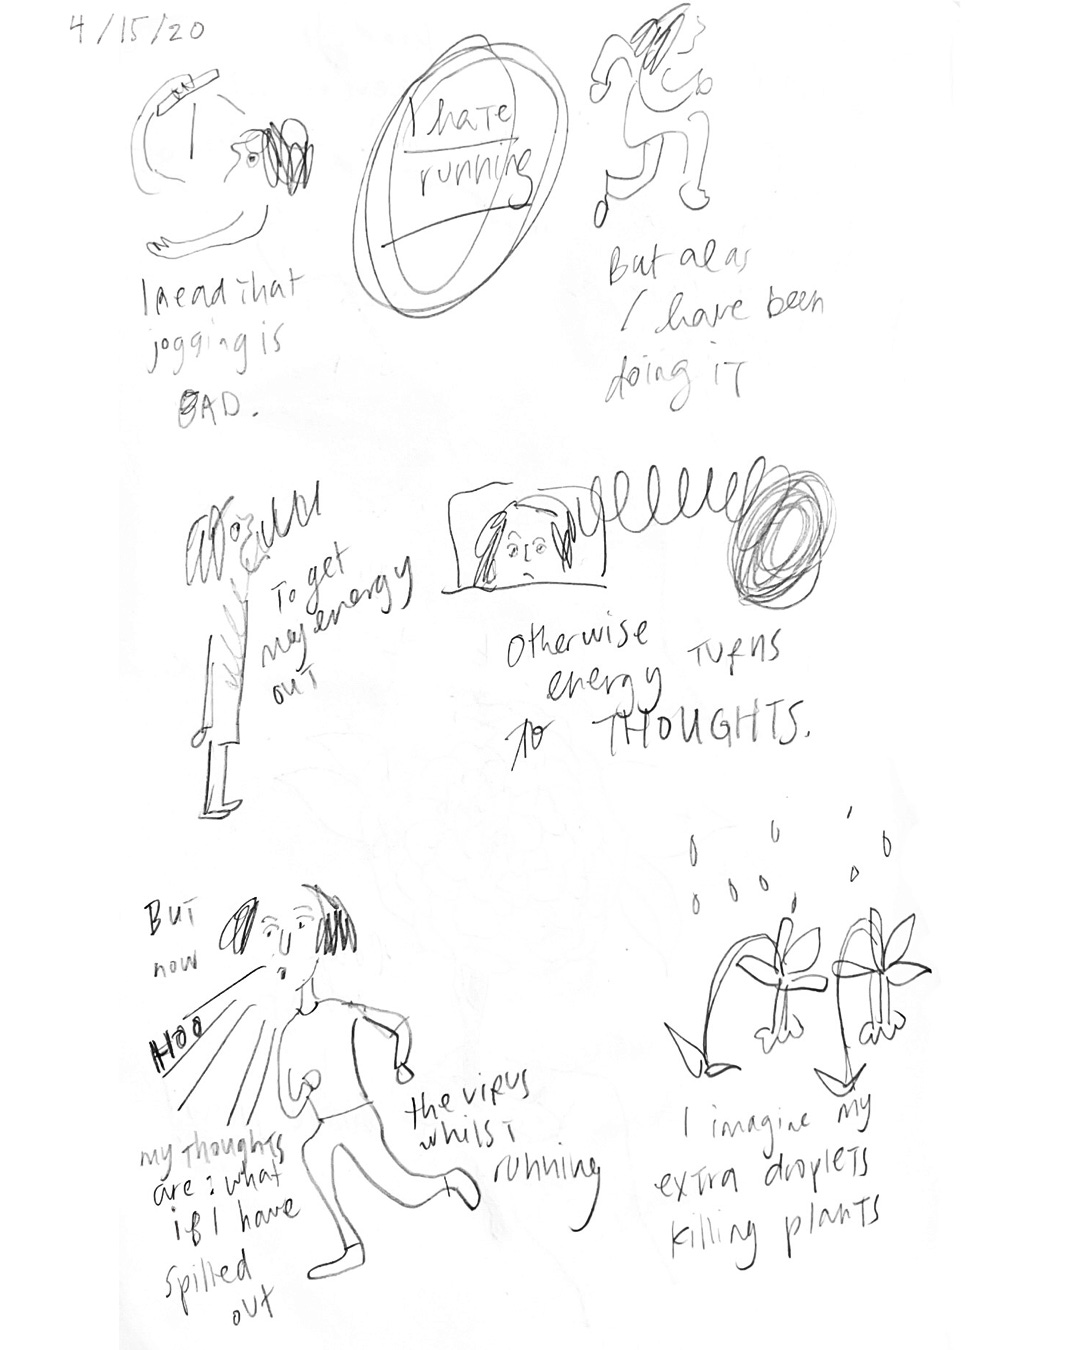 4/15/20
I read that
jogging is
BAD.
I hate
running
But alas
I have been
doing it
To get
my energy
out
Otherwise
energy turns
to THOUGHTS.
But
now
HOO
my thoughts
are: what
if I have
spilled
out
the virus
whilst
running
I imagine my
extra droplets
killing plants